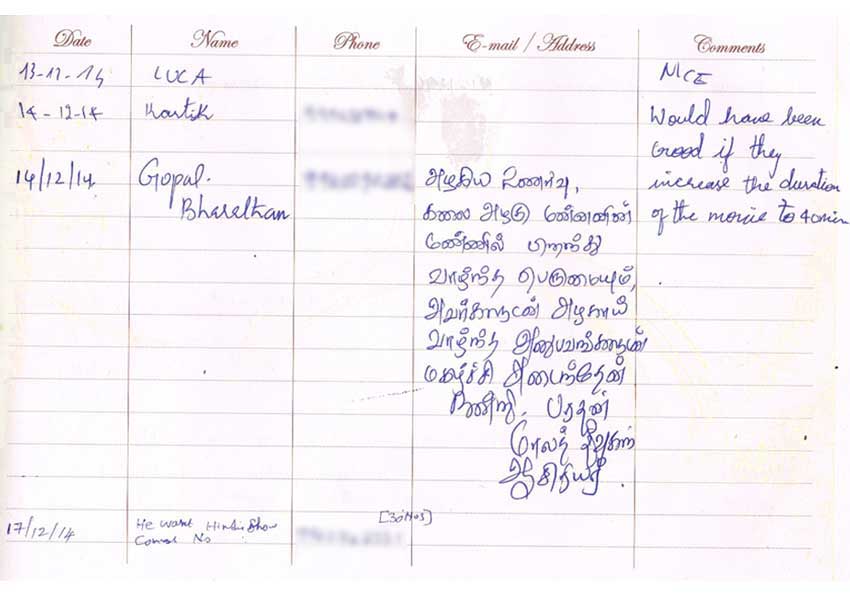 Date Name Phone E-mail / Address Comments
13-12-14 LUCA NICE
14-12-14 Kartik Would have been
Good if they
14/12/14 Gopal. அழகிய உணர்வு, increase the duration
Bharathan கலை அழகு மன்னனின் of the movie to 40min
மண்ணில் பிறந்து
வாழ்ந்த பெருமையும்,
அவர்களுடன் அழகாய்
வாழ்ந்த அனுபவங்களுடன்
மகிழ்ச்சி அடைந்தேன்
நன்றி. பரதன்
ஆசிரியர்.
[30Nos]
17/12/14 He want Hindi Show
No